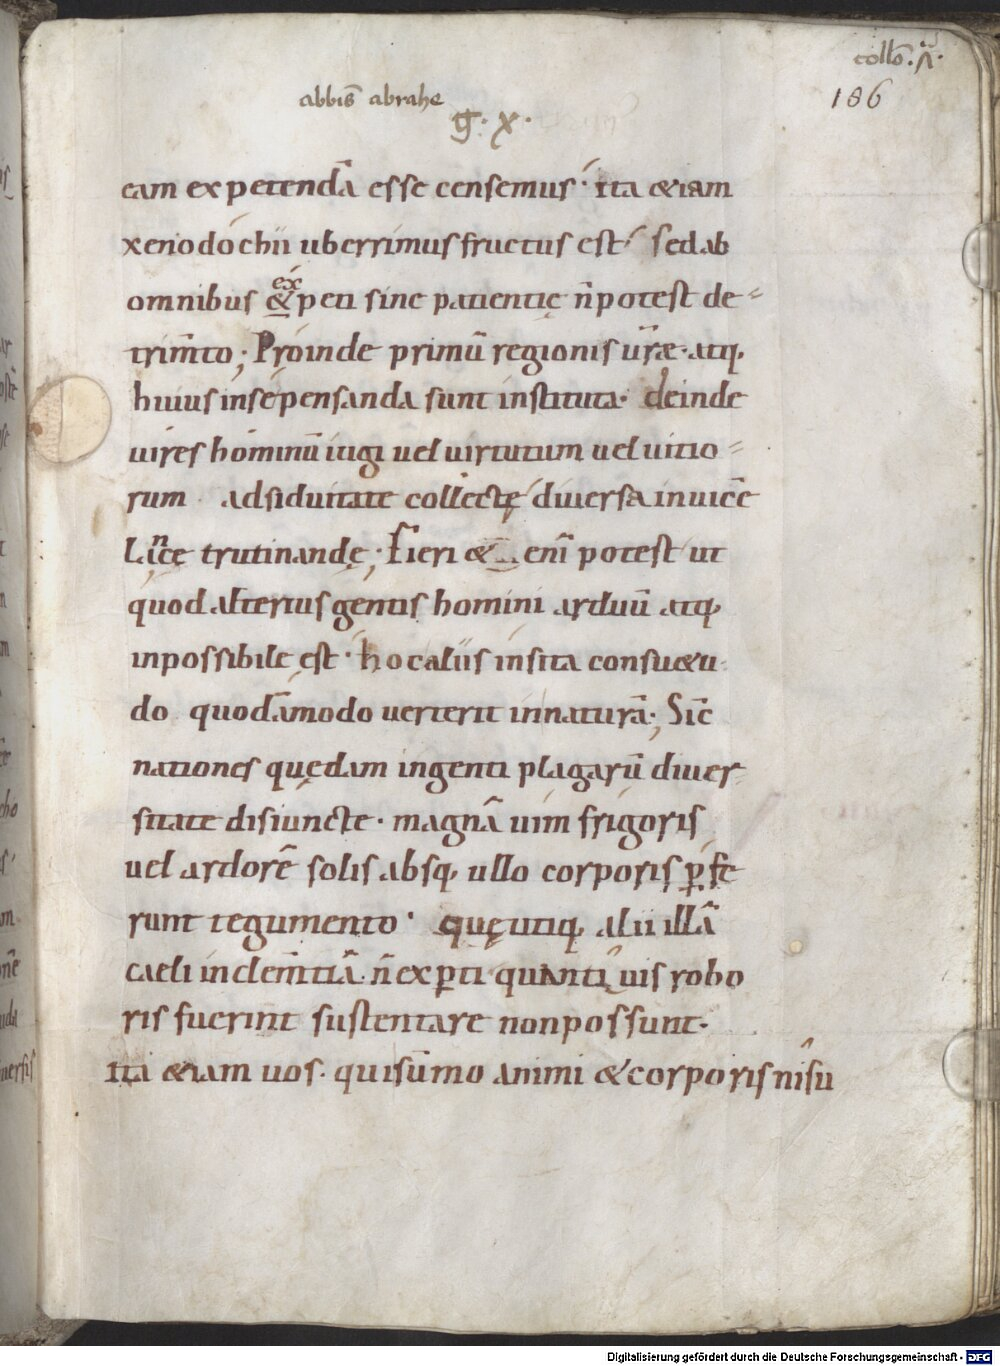 collo. A.
186
abbis̄ abrahe
g. x.
eam expetendā esse censemus. ita &iam
xenodochii uberrimus fructus est. sed ab
omnibus & ex peti sine patientię n̄ potest de-
trim̄to; Proinde primū regionis ur̄ae. atq.
huius inse pensanda sunt instituta. deinde
uires hominū iugi uel uirtutum uel uitio-
rum adsiduitate collectę diuersa inuicē
lance trutinandę; Fieri & eni̅ potest ut
quod alterius gentis homini arduū atq.
inpossibile est. hoc aliis insita consu&u-
do quodāmodo uerterit in naturā; Sic̄
nationes quędam ingenti plagarū diuer-
sitate disiuncte. magnā uim frigoris
uel ardorē solis absq. ullo corporis ꝑfe
runt tegumento. quę utiq. alii illā
caeli inclem̄tiā. n̄ exꝑti quanti uis robo
ris fuerint sustentare non possunt.
Ita &iam uos. qui sūmo animi & corporis nisu
Digitalisierung gefördert durch die Deutsche Forschungsgemeinschaft - DFG